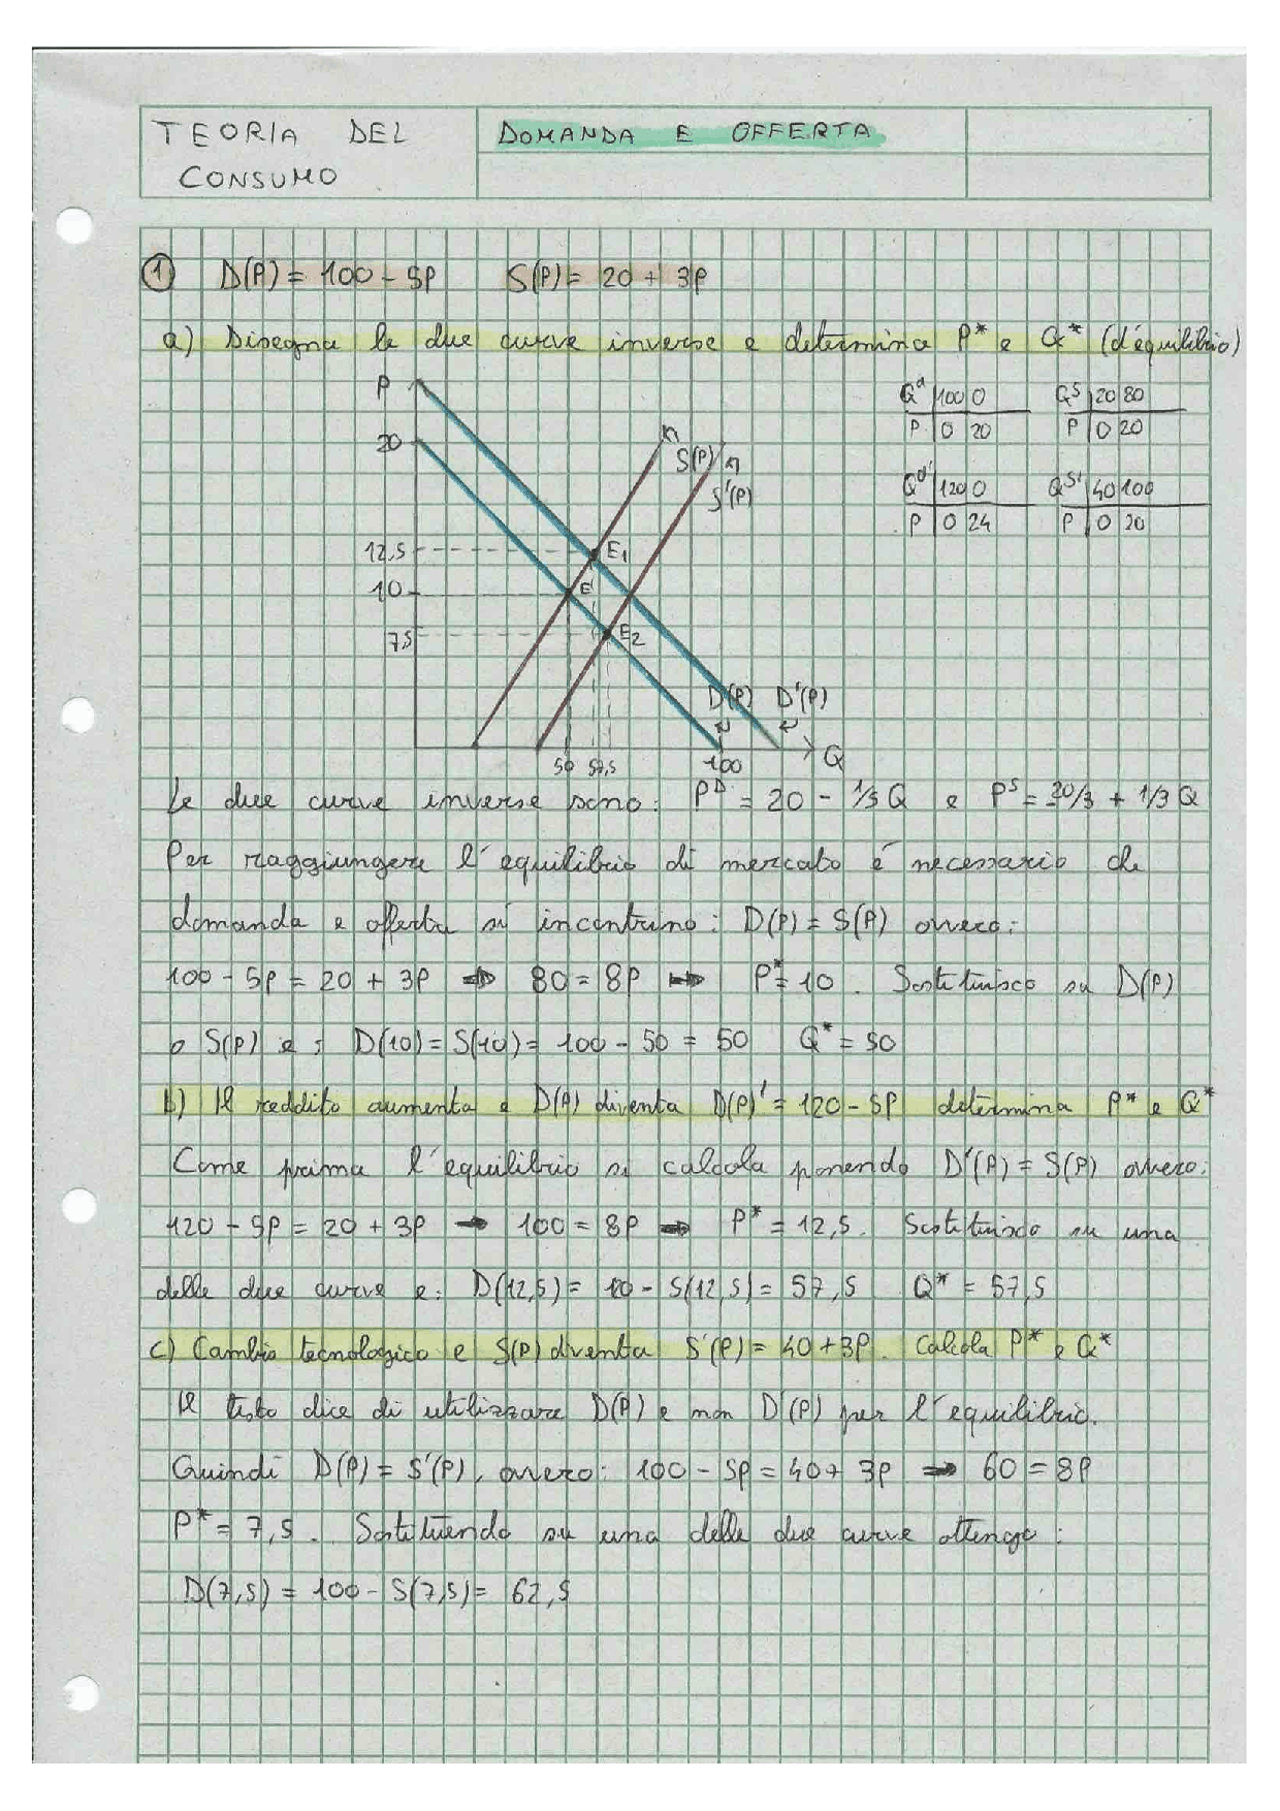 TEORIA DEL CONSUMO
DOMANDA E OFFERTA
① D(P) = 100 - 5P S(P) = 20 + 3P
a) Disegna le due curve inverse e determina P* e Q* (d'equilibrio)
P
20
12,5
10
7,5
E1
E
E2
S(P)
S'(P)
D(P) D'(P)
50 57,5 100 Q
Qd 100 0
P 0 20
QS 20 80
P 0 20
Qd' 120 0
P 0 24
QS' 40 100
P 0 20
Le due curve inverse sono: PD = 20 - 1/5 Q e PS = 20/3 + 1/3 Q
Per raggiungere l'equilibrio di mercato é necessario che
domanda e offerta si incontrino: D(P) = S(P) ovvero:
100 - 5P = 20 + 3P → 80 = 8P → P* = 10. Sostituisco su D(P)
o S(P) e: D(10) = S(10) = 100 - 50 = 50 Q* = 50
b) Il reddito aumenta e D(P) diventa D(P)' = 120 - 5P determina P* e Q*
Come prima l'equilibrio si calcola ponendo D'(P) = S(P) ovvero:
120 - 5P = 20 + 3P → 100 = 8P → P* = 12,5. Sostituisco su una
delle due curve e: D(12,5) = 120 - 5(12,5) = 57,5 Q* = 57,5
c) Cambio tecnologico e S(P) diventa S'(P) = 40 + 3P. Calcola P* e Q*
Il testo dice di utilizzare D(P) e non D'(P) per l'equilibrio.
Quindi D(P) = S'(P), ovvero: 100 - 5P = 40 + 3P → 60 = 8P
P* = 7,5. Sostituendo su una delle due curve ottengo:
D(7,5) = 100 - 5(7,5) = 62,5